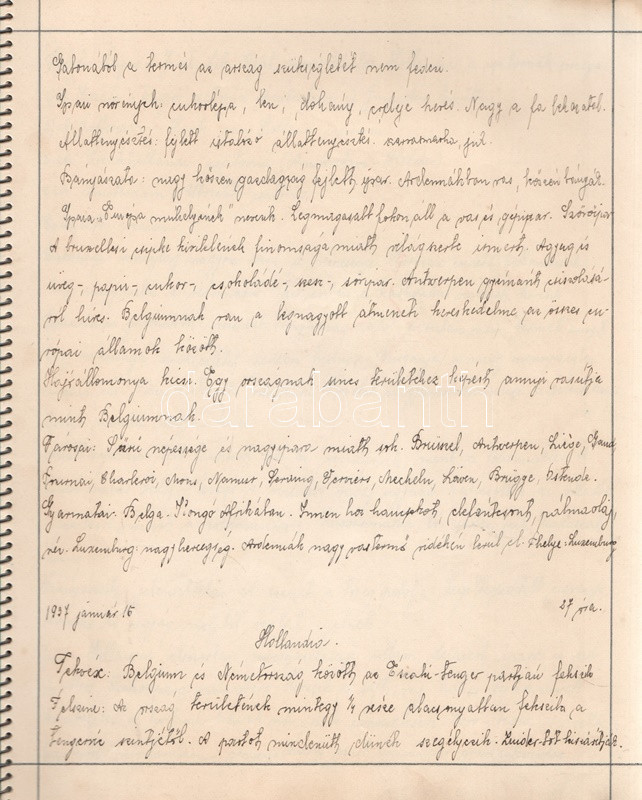 Gabonából a termés az ország szükségletét nem fedezi.
Ipari növények: cukorrépa, len, dohány, vereje herés. Nagy a fa behozatal.
Állattenyésztés: fejlett istálózó állattenyésztés. szarvasmarha, juh.
Bányászata: nagy kőszén gazdagság fejlett ipar. Ardennákban vas, kőszén bányát.
Ipara: "Európa műhelyének" nevezik. Legmagasabb fokon áll a vas és gépipar. Szövőipar
A bruxellesi csipke kivitelének finomsága miatt világszerte ismert. Agyag és
üveg-, papír-, cukor-, csokoládé-, szesz-, söripar. Antwerpen gyémánt csiszolásá-
ról híres. Belgiumnak van a legnagyobb átmeneti kereskedelme az összes eu-
rópai államok között.
Hajóállománya kicsi. Egy országnak sincs területéhez képest annyi vasútja
mint Belgiumnak.
Városai: Sűrű népessége és nagyipara miatt sok. Brüssel, Antwerpen, Liége, Gand
Tournai, Charleroi, Mons, Namur, Seraing, Verviers, Mecheln, Löwen, Brügge, Ostende.
Gyarmatai: Belga-Kongo Afrikában. Innen hoz kaucsukot, elefántcsont, pálmaolaj,
réz. Luxemburg: nagyhercegség. Ardennák nagy vastermő vidékén terül el. Fhelye: Luxemburg
1937 január 15
27 óra.
Hollandia.
Fekvés: Belgium és Németország között az Északi-tenger partján fekszik
Felszíne: Az ország területének mintegy 1/4 része alacsonyabban fekszik a
tengervíz szintjétől. A partot mindenütt dünék szegélyezik. Zuider-tot kiszárítják.
darabanth